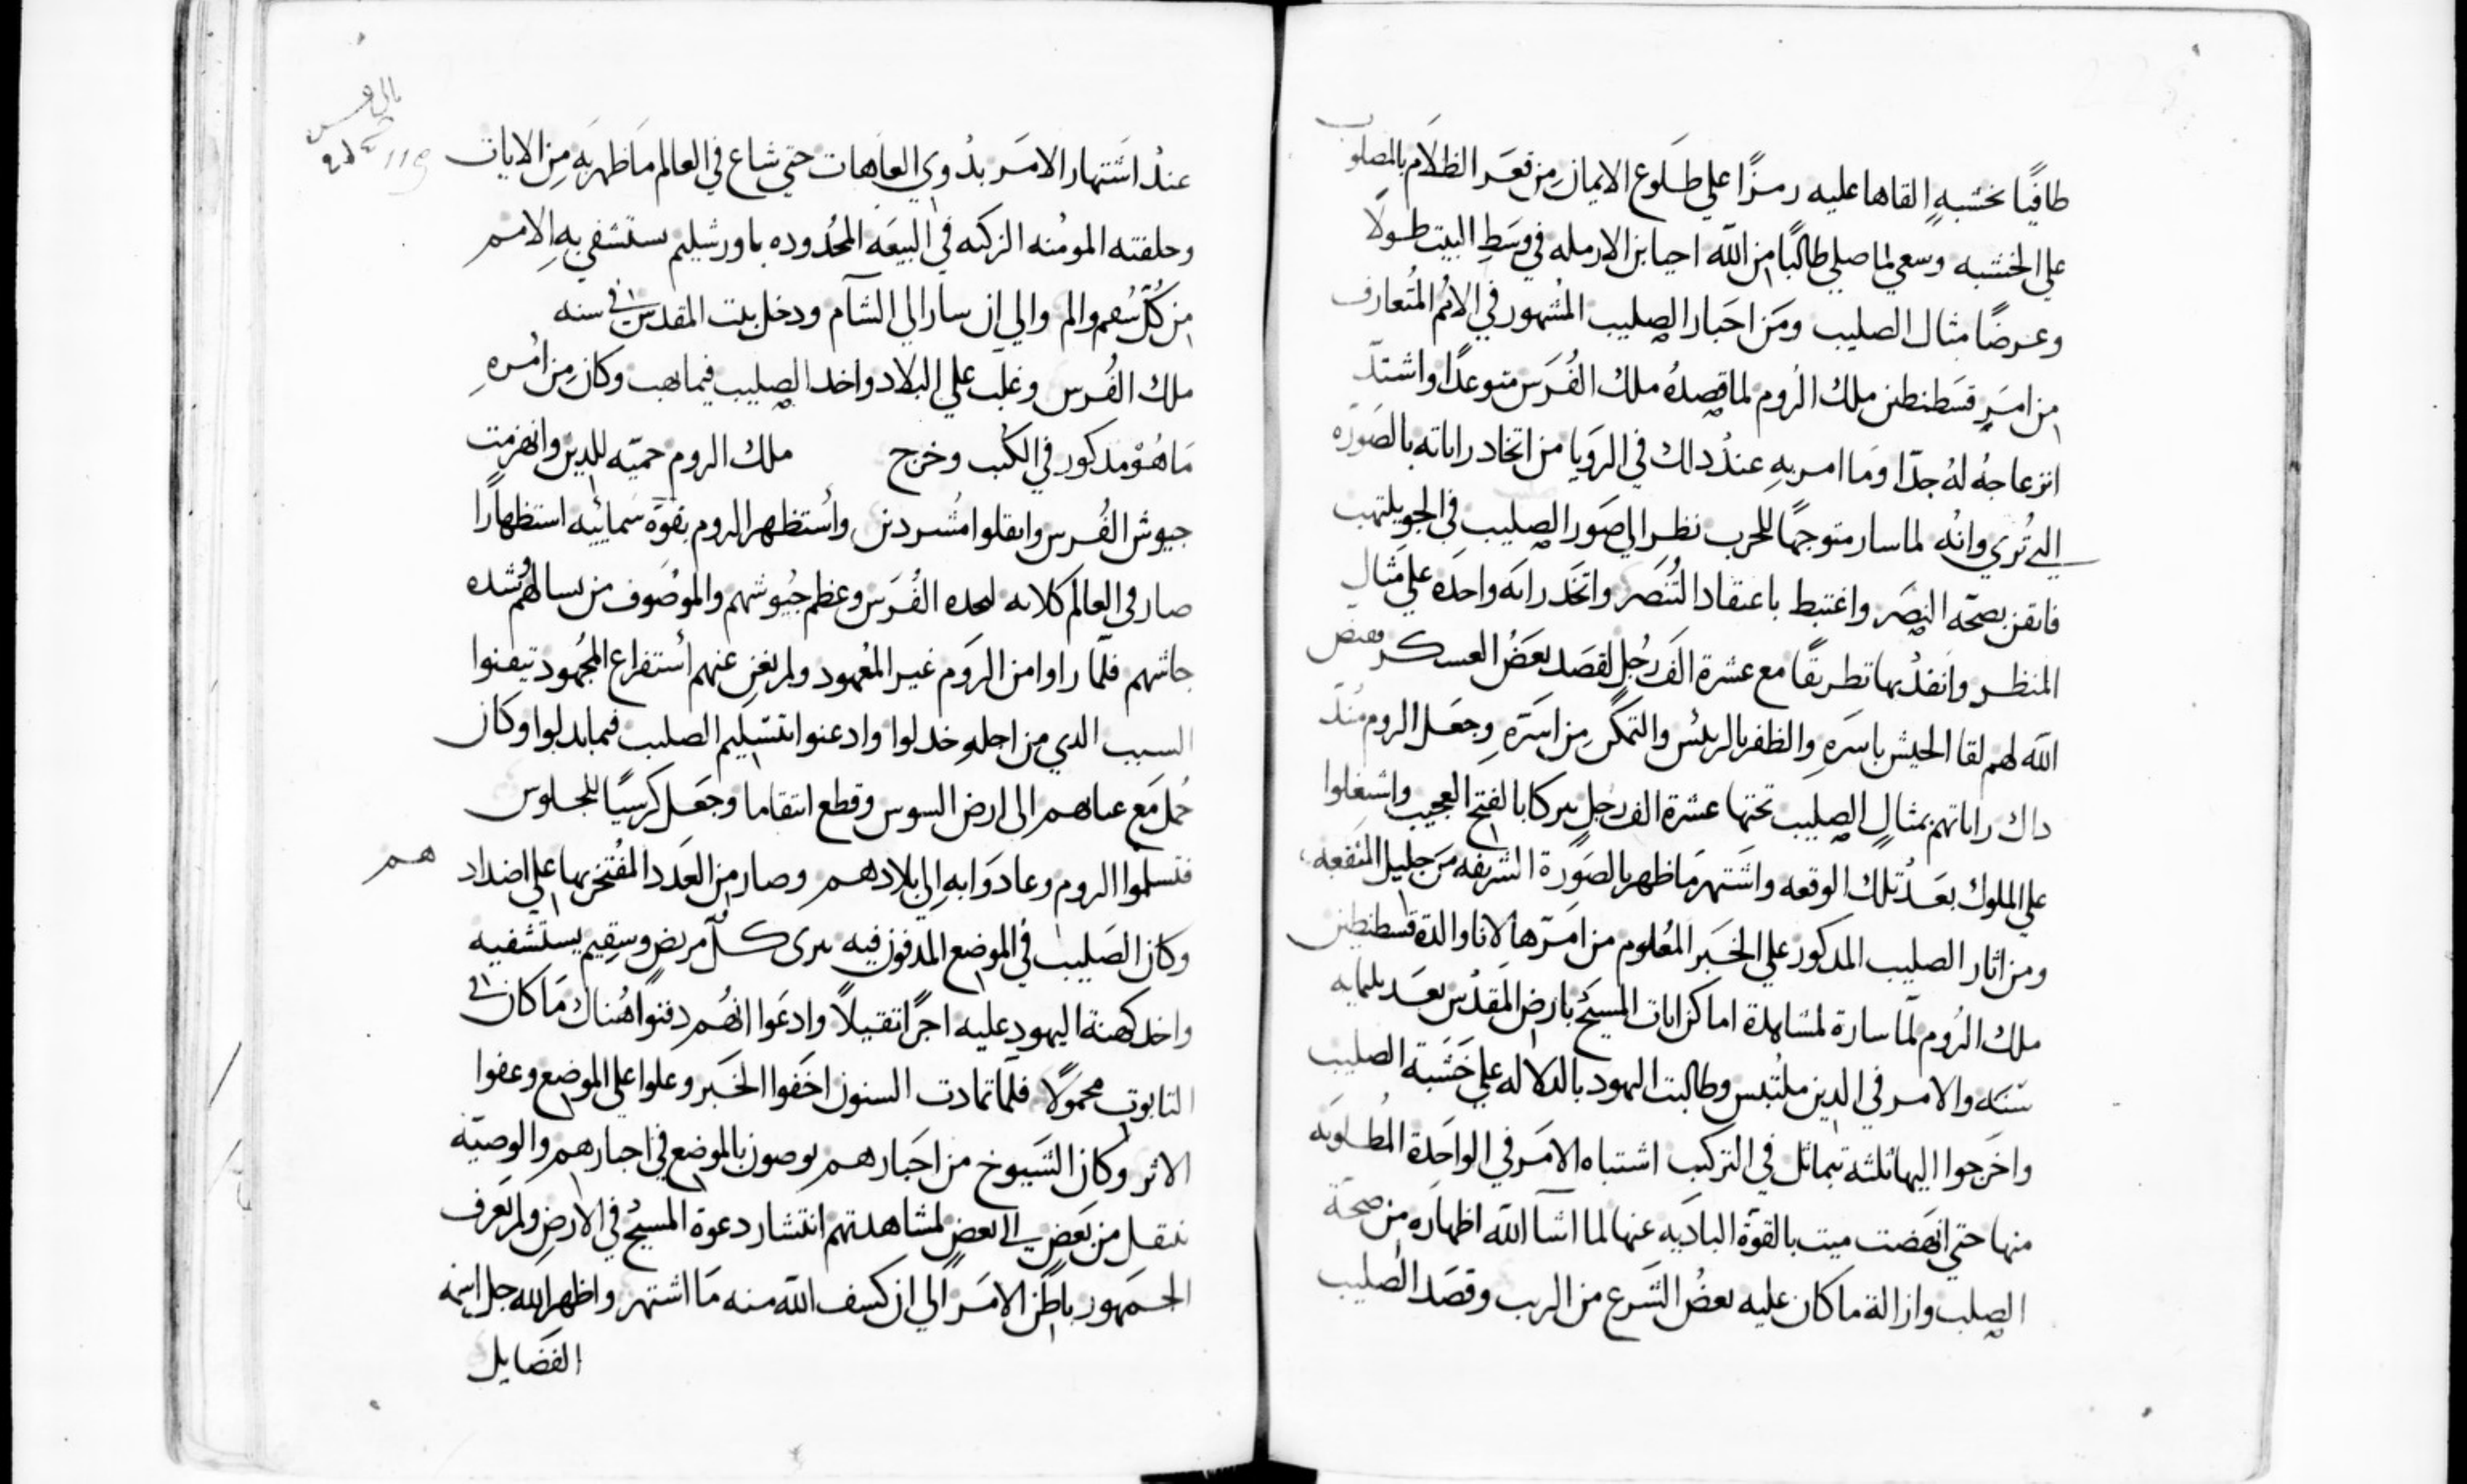 طافيًا بخشبهٍ القاها عليه رمزًا علي طلوع الايمان من قعر الظلام بالمصلوب
علي الخشبه وسعي لما صلي طالبًا من الله احيا بن الارمله في وسَطِ البيت طولًا
وعرضًا مثال الصليب ومن اخبار الصليب المشهور في الامُم المُتعارف
من امرِ قسطنطين ملك الروم لما قصدهُ ملك الفُرس متوعدًا واشتدّ
انزعاجهُ لهُ جدّا وما امر بهِ عند دلك في الرويا من اتخاد راياته بالصوره
التي تُري وانُه لما سار متوجهًا للحرب نظر الي صور الصليب في الجو يلتهب
فايقن بصحّه النصر واغتبط باعتقاد التُنصر واتخد رايه واحده علي مثال
المنظر وانفد بها بطريقًا مع عشرة الف رجُلٍ لقصد بعضُ العسكر
الله لهم لقا الجيش باسرهِ والظفر بالريئس والتمكّن من اسَرَهِ وجعل الروم مُند
داك راياتهم بمثالِ الصليب تحتها عشرة الف رجلٍ تبركا بالفتح العجيب واشتغلوا
علي الملوك بعد تلك الوقعه واشتهر ما ظهر بالصورة الشريفه من جليل المنفعه
ومن اثار الصليب المدكور علي الخبر المعُلوم من امرها لانا والدة قسطنطين
ملك الروم لمّا سارة لمشاهدة اماكن ايات المسيح بارض المقدس بعد تلتمايه
سنه والامر في الدين ملتُبس وطالبت اليهود بالدلاله علي خشبة الصليب
واخرجوا اليها ثلثه تتماثل في التركيب اشتباه الامر في الواحدة المُطلوبَه
منها حتي انهَضت ميت بالقوّة الباديه عنها لما اشآ الله اظهاره من صحة
الصلب وازالة ما كان عليه بعضُ الشرع من الريب وقصد الصليب
عند اشتهار الامر بدوي العاهات حتي شاع في العالم ما ظهر به من الايات
وحلفته المومنه الزكيه في البيعه المحُدوده باورشليم يستشفي بهِ الامم
من كُلّ سُقم والم والي ان سار الي الشآم ودخل بيت المقدس في سنه
ملك الفُرس وغلب علي البلاد واخد الصليب فيما نهب وكان من امُرهِ
ما هُوْ مدكور في الكتب وخرج ملك الروم حميّه للدين وانهزمت
جيوش الفُرس وانفلوا مُشردين واستظهر الروم بقوّه سمائيه استظهارًا
صار في العالم كلايه لنجده الفُرس وعظم جُيوشهم والموصُوف من بسالتهُم وشده
جاشهم فلمّا راوا من الروم غير المعُهود ولم يغنِ عنهم استفراع المجُهود تيقنوا
السبب الدي من اجلهِ خدلوا وادعنوا بتسليم الصليب فيما بدلوا وكان
حُمل مع الى ارض السوس وقطع انتقاما وجعل كرسيًا للجلوس
فتسلموا الروم وعادوا به الي بلادهم وصار من العدد المُفتخر بها علي اضدادهم
وكان الصليب في الموضع المدفون فيه يبرى كلُّ مريض وسقِيم يستشفيه
واخد كهنة اليهود عليه اجرًا تقيلًا وادعوا انهُم دفنوا هُناك ما كان في
التابوت محمولًا فلمّا تمادت السنون اخفوا الخبر وعلوا علي الموضع وعفوا
الاثر وكان الشيوخ من احَبارهم يوصون بالموضع في احبارهم والوصيّه
تنتقل من بعضٍ الي بعضٍ لمشاهدتهم انتشار دعوة المسيح في الارض ولم تعرف
الجمهور باطن الامر الي ان كشف الله منه ما اشتهر واظهر الله جل اسمه
الفضايل